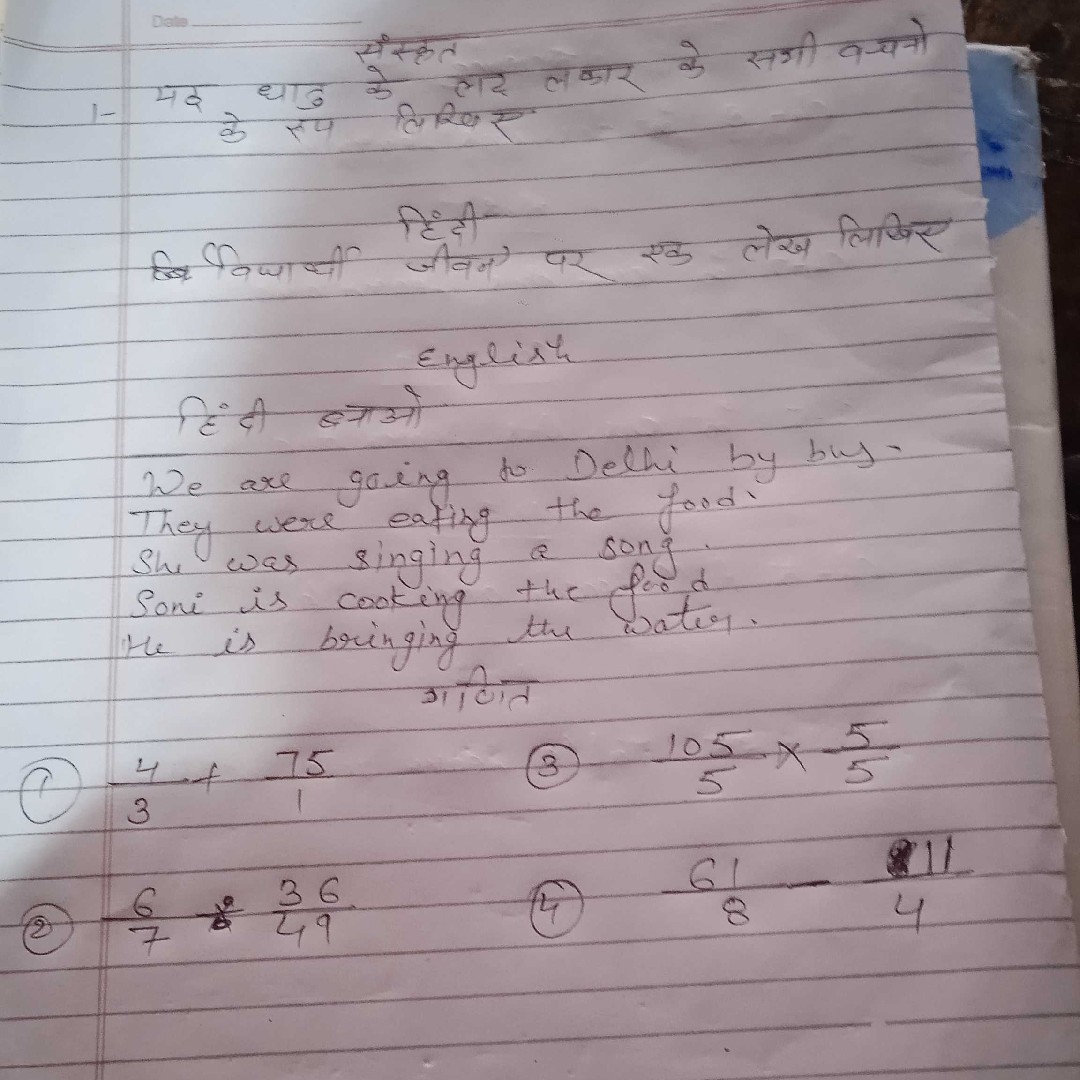 Date
संस्कृत
1- पद धातु के लट लकार के सभी वचनो
के रुप लिखिए
हिंदी
विधार्थी जीवन पर एक लेख लिखिए
English
हिंदी बनाओ
We are going to Delhi by bus-
They were eating the food.
She was singing a song.
Soni is cooking the food
He is bringing the water.
गणित
① 4/3 + 75/1 ③ 105/5 × 5/5
② 6/7 ÷ 36/49 ④ 61/8 - 11/4